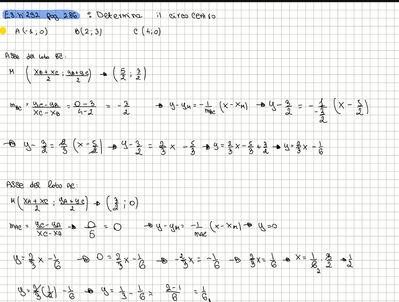 ES. n° 292 pag 286 : Determina il circocentro
A (-1; 0) B(2; 3) C (4; 0)
Asse del lato BC:
M (xB+xC/2 ; yB+yC/2) → (5/2 ; 3/2)
mBC = yC-yB/xC-xB = 0-3/4-2 = -3/2 → y-yM = -1/mBC (x-xM) → y-3/2 = -1/-3/2 (x-5/2)
→ y-3/2 = 2/3 (x-5/2) → y-3/2 = 2/3x - 5/3 → y = 2/3x - 5/3 + 3/2 → y = 2/3x - 1/6
Asse del lato AC:
M (xA+xC/2 ; yA+yC/2) → (3/2 ; 0)
mAC = yC-yA/xC-xA → 0/5 = 0 → y-yM = -1/mAC (x-xM) → y=0
y = 2/3x - 1/6 → 0 = 2/3x - 1/6 → -2/3x = -1/6 → 2/3x = 1/6 → x = 1/6 · 3/2 → 1/2
y = 2/3(1/2) - 1/6 → y = 1/3 - 1/6 = 2-1/6 = 1/6